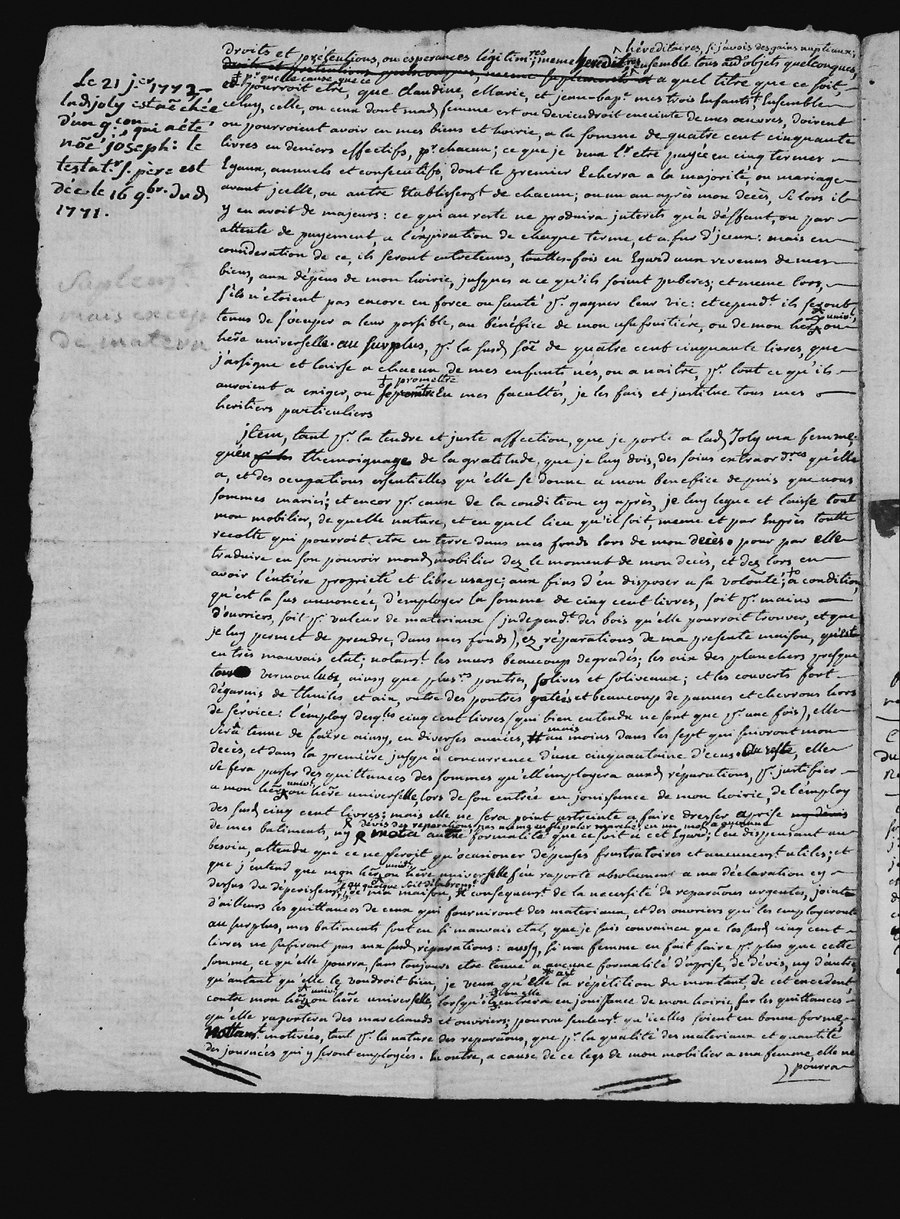 Le 21 j.er 1772
lad joly est accchée
d'un g.con
qui a été
no͞e joseph: le
testat.r s. père est
décé le 16 9.br dud
1771.
Saplem.t
mais excep
de matern
héréditaires, si j'avois des gains nuptiaux;
droits et prétentions, ou esperances légitim.res même heredit.res ensemble tous aud. objets quelconques,
p.r quelle cause, que ce a quel titre que ce soit
et pourroit etre, que Claudine, Marie, et jean bap.t mes trois Enfants: Ensemble
celuy, celle, ou ceux dont mad femme est ou deviendroit enceinte de mes œuvres, doivent
ou pourroient avoir en mes biens et hoirie, a la somme de quatre cent cinquante
livres en deniers effectifs, p.r chacun; ce que je veux l.r etre payée en cinq termes
Egaux, annuels et consecutifs, dont le premier Echerra a la majorité, ou mariage
avant jcelle, ou autre Etablissem.t de chacun; ou un an après mon décès, Si lors il
y en avoit de majeurs: ce qui au reste ne produira interets qu'a déffaut, ou par
attente de payement, a l'expiration de chaque terme, et a fur d'jceux: mais en
consideration de ce, ils seront entretenus, touttes-fois en Egard aux revenus de mes
biens, aux dépens de mon hoirie, jusques a ce qu'ils soient puberes; et meme lors,
s'ils n'etoient pas encore en force ou santé p.r gagner leur vie: et cepend.t ils seront
tenus de s'occuper a leur possible, au bénéfice de mon usufruitière, ou de mon her. ou
univ.l
her͞e universelle. au surplus, p.r la susd so͞e de quatre cent cinquante livres, que
j'assigne et laisse a chacun de mes enfants nés, ou a naitre, p.r tout ce qu'ils
promettre
auroient a exiger, ou se En mes facultés, je les fais et jnstitue tous mes
heritiers particuliers
jtem, tant p.r la tendre et juste affection, que je porte a lad. Joly ma femme;
qu'en themoignage de la gratitude, que je luy dois, des soins extraord.res qu'elle
a, et des ocupations essentielles qu'elle se donne a mon benefice depuis que nous
sommes mariés; et encor p.r cause de la condition cy après, je luy legue et laisse tout
mon mobilier, de quelle nature, et en quel lieu qu'il soit, meme et par Exprès toutte
recolte qui pourroit etre en terre dans mes fonds lors de mon decès. pour par elle
traduire en son pouvoir mond mobilier dez le moment de mon decès, et dez lors en
avoir l'entière propriété et libre usage; aux fins d'en disposer a sa volonté; a condition,
qu'est la sus annoncée, d'employer la somme de cinq cent livres, soit p.r mains
d'ouvriers, soit p.r valeur de materiaux (independ.t des bois qu'elle pourroit trouver, et que
je luy permet de prendre, dans mes fonds), ez réparations de ma presente maison, qui est
en très mauvais etat; notam.t les murs beaucoup degradés; les aix des planchers presque
tous vermoulus, ainsy que plus.rs poutres, solives et soliveaux; et les couverts fort
dégarnis de thuiles et aix, outre des poutres gatées et beaucoup de pannes et chevrons hors
de service: l'employ desq.les cinq cent livres (qui bien entendu ne sont que p.r une fois), elle
sera tenue de faire ainsy, en diverses années, au moins dans les sept qui suivront mon
decès, et dans la première jusqu'a concurrence d'une cinquantaine d'ecus. Au reste, elle
se fera passer des quittances des sommes qu'elle employera auxd réparations, p.r justifier
univ.l
a mon her. ou hère universelle, lors de son entrée en jouissance de mon hoirie, de l'employ
des susd cinq cent livres; mais elle ne sera point astreinte a faire dresser aprise
devis des reparations; pas meme a stipuler marché; en un mot a aucune
de mes batiments, ny autre formalité que ce soit a cet Egard; l'en dispensant au
besoin, attendu que ce ne seroit qu'ocasioner depenses frustratoires et aucunem.t utiles; et
univ.l
que j'entend que mon her. ou hère universelle s'en raporte absolument a ma declaration cy
dessus du déperissem.t de ma maison, consequem.t de la necessité de reparaõns urgentes, jointe
d'ailleurs les quittances de ceux qui fourniront des materiaux, et des ouvriers qui les employeront
au surplus, mes batiments sont en si mauvais etat, que je suis convaincu que les susd cinq cent
livres ne sufiront pas aux susd réparations: aussy, si ma femme en fait faire p.r plus que cette
somme, ce qu'elle pourra, sans toujours etre tenue a aucune formalité d'aprise, de dévis, ny d'autre
qu'autant qu'elle le voudroit bien, je veux qu'elle ait la répétition du montant de cet excedent,
univ.l ou elle
contre mon her. ou hère universelle, lorsqu'il entrera en jouissance de mon hoirie, sur les quittances
qu'elle raportera des marchands et ouvriers; pourvu seulem.t qu'icelles soient en bonne forme,
Nottam.t motivées, tant p.r la nature des reparaõns, que p.r la qualité des materiaux et quantité
des journées qui y seront employées. En outre, a cause de ce legs de mon mobilier a ma femme, elle ne
pourra